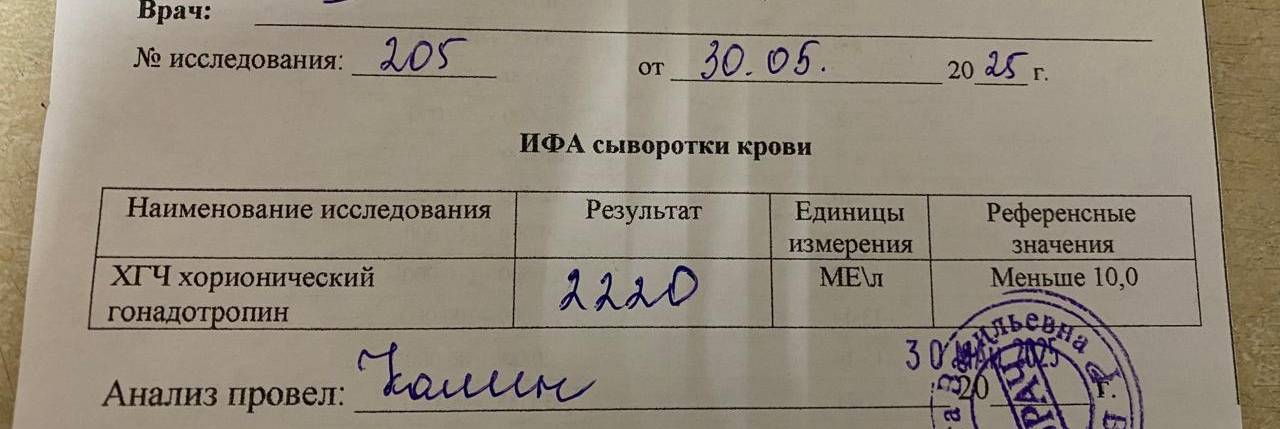 Врач:
№ исследования: 205 от 30.05. 2025 г.
ИФА сыворотки крови
Наименование исследования Результат Единицы измерения Референсные значения
ХГЧ хорионический гонадотропин 2220 МЕ\л Меньше 10,0
30 МАЙ 2025
Анализ провел: 20 г.
Васильевна
ВРАЧ